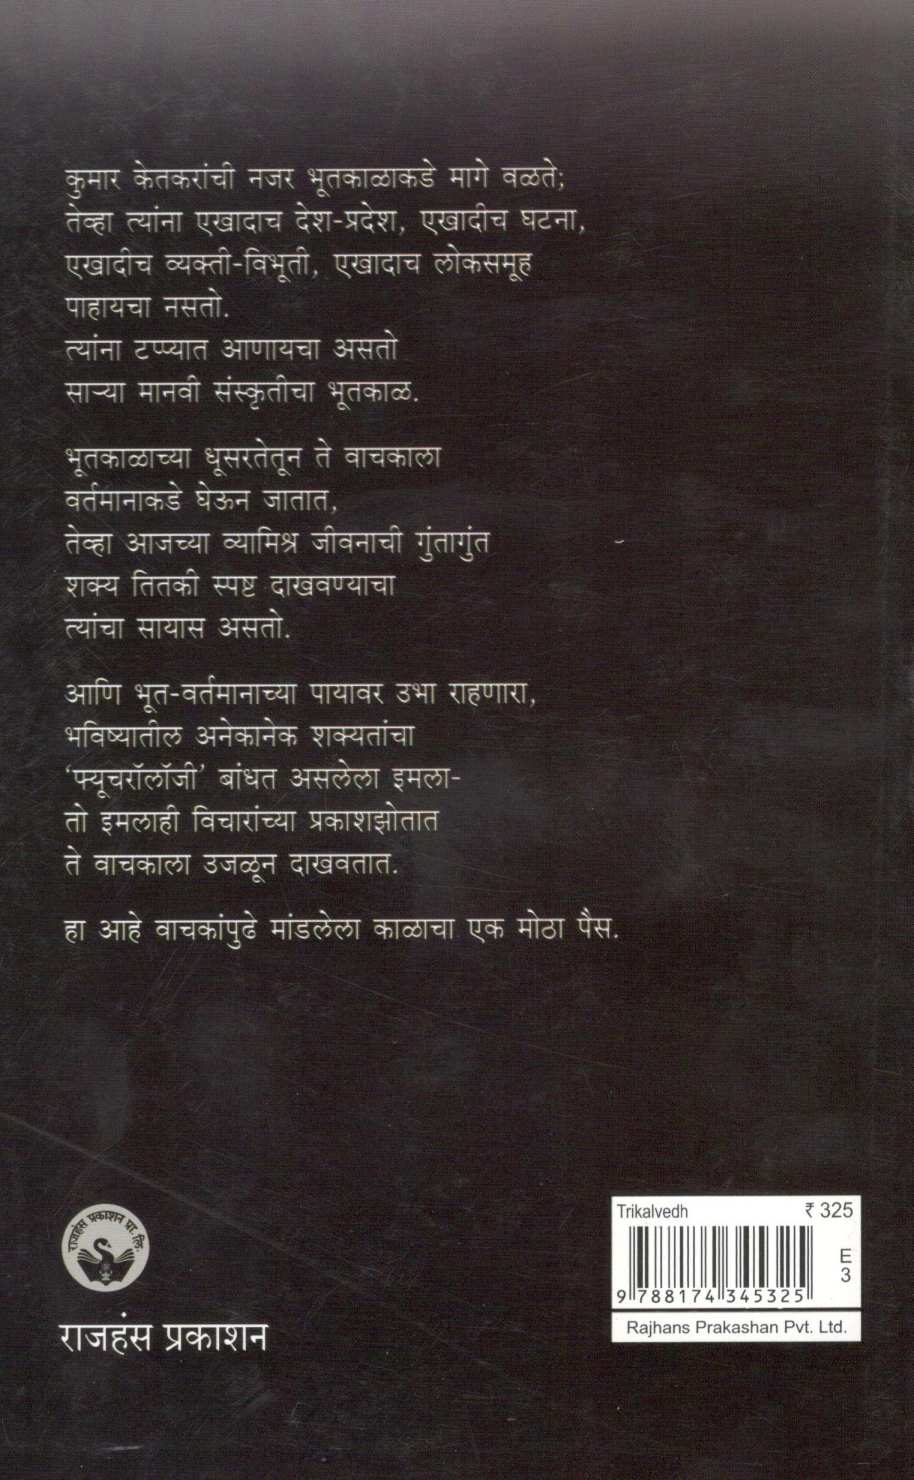 कुमार केतकरांची नजर भूतकाळाकडे मागे वळते;
तेव्हा त्यांना एखादाच देश-प्रदेश, एखादीच घटना,
एखादीच व्यक्ती-विभूती, एखादाच लोकसमूह
पाहायचा नसतो.
त्यांना टप्प्यात आणायचा असतो
साऱ्या मानवी संस्कृतीचा भूतकाळ.
भूतकाळाच्या धूसरतेतून ते वाचकाला
वर्तमानाकडे घेऊन जातात,
तेव्हा आजच्या व्यामिश्र जीवनाची गुंतागुंत
शक्य तितकी स्पष्ट दाखवण्याचा
त्यांचा सायास असतो.
आणि भूत-वर्तमानाच्या पायावर उभा राहणारा,
भविष्यातील अनेकानेक शक्यतांचा
‘फ्यूचरॉलॉजी’ बांधत असलेला इमला-
तो इमलाही विचारांच्या प्रकाशझोतात
ते वाचकाला उजळून दाखवतात.
हा आहे वाचकांपुढे मांडलेला काळाचा एक मोठा पैस.
राजहंस प्रकाशन प्रा. लि.
राजहंस प्रकाशन
Trikalvedh ₹ 325
E
3
9 788174 345325
Rajhans Prakashan Pvt. Ltd.